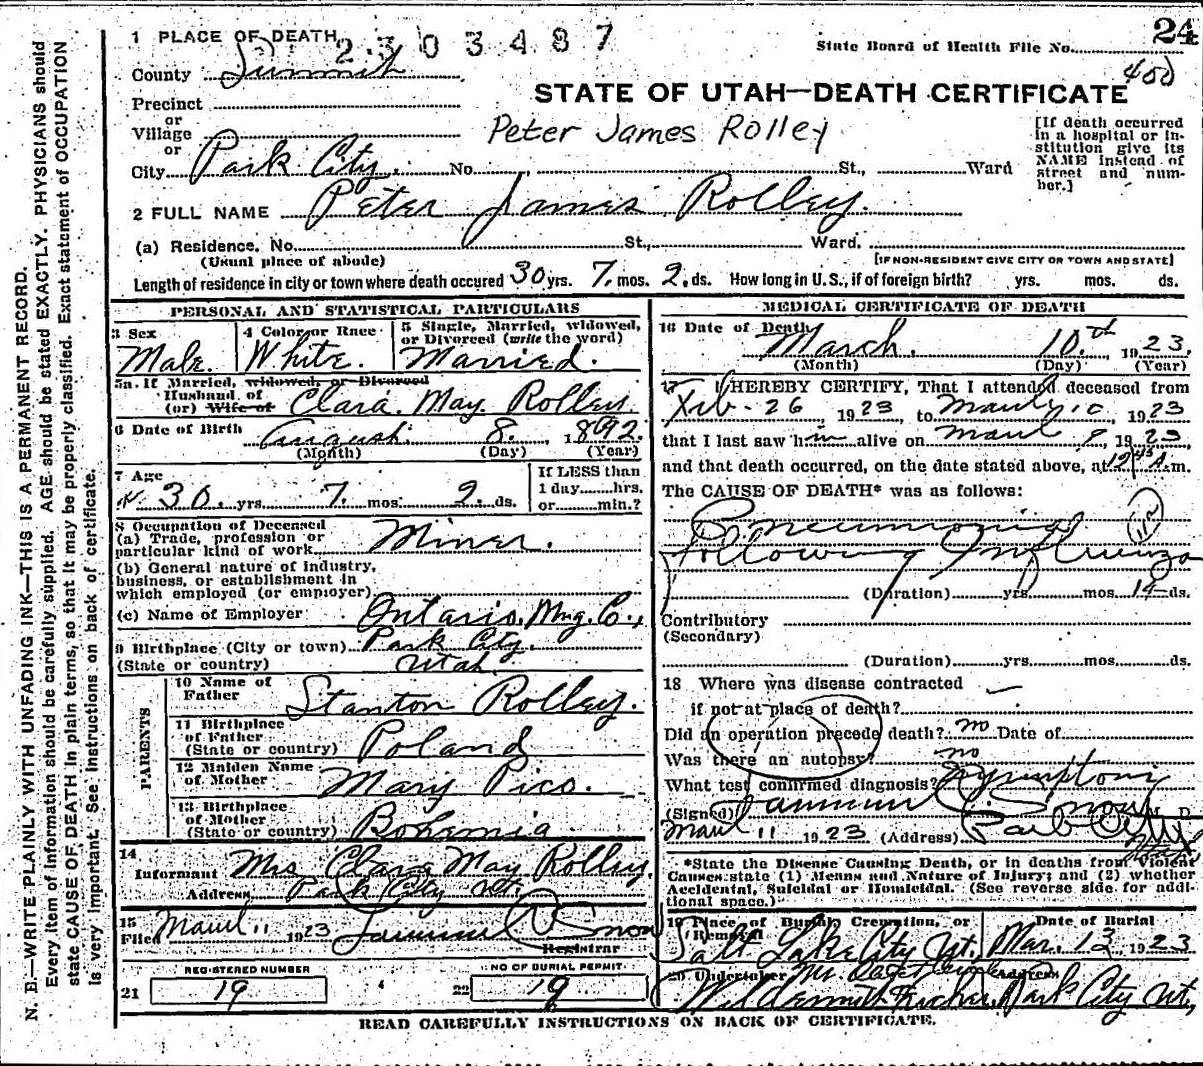 24
1 PLACE OF DEATH 2303487
State Board of Health File No.
400
County Summit
STATE OF UTAH—DEATH CERTIFICATE
Precinct
or
Village
Peter James Rolley
or
City Park City. No. St., Ward
[If death occurred in a hospital or institution give its NAME instead of street and number.]
2 FULL NAME Peter James Rolley.
(a) Residence. No. St., Ward.
(Usual place of abode) [IF NON-RESIDENT GIVE CITY OR TOWN AND STATE]
Length of residence in city or town where death occured 30 yrs. 7. mos. 2. ds. How long in U.S., if of foreign birth? yrs. mos. ds.
PERSONAL AND STATISTICAL PARTICULARS
3 Sex
Male.
4 Color or Race
White.
5 Single, Married, widowed,
or Divorced (write the word)
Married.
5a. If Married, widowed, or Divorced
Husband of
(or) Wife of Clara. May. Rolley.
6 Date of Birth August. 8. 1892.
(Month) (Day) (Year)
7 Age
30. yrs. 7. mos. 2. ds.
If LESS than
1 day hrs.
or min.?
8 Occupation of Deceased
(a) Trade, profession or
particular kind of work Miner.
(b) General nature of industry,
business, or establishment in
which employed (or employer)
(c) Name of Employer Ontario. Mng. Co.,
9 Birthplace (City or town) Park City.
(State or country) Utah
PARENTS
10 Name of
Father Stanton Rolley.
11 Birthplace
of Father
(State or country) Poland
12 Maiden Name
of Mother Mary Pico.
13 Birthplace
of Mother
(State or country) Bohemia
14
Informant Mrs. Clara May Rolley.
Address Park City Ut.
15
Filed 11 1923
Registrar
REGISTERED NUMBER
21 19
NO OF BURIAL PERMIT
22 19
MEDICAL CERTIFICATE OF DEATH
16 Date of Death
March. 10th, 1923.
(Month) (Day) (Year)
17 I HEREBY CERTIFY, That I attended deceased from
Feb. 26 1923 to March 10, 1923
that I last saw him alive on March 9, 1923,
and that death occurred, on the date stated above, at m.
The CAUSE OF DEATH* was as follows:
Pneumonia
following Influenza
(Duration) yrs mos 14 ds.
Contributory
(Secondary)
(Duration) yrs. mos. ds.
18 Where was disease contracted
if not at place of death?
Did an operation precede death? no Date of
Was there an autopsy? no
What test confirmed diagnosis? Symptoms
(Signed) M. D.
11 1923 (Address) Park City
Utah
*State the Disease Causing Death, or in deaths from Violent
Causes state (1) Means and Nature of Injury; and (2) whether
Accidental, Suicidal or Homicidal. (See reverse side for addi-
tional space.)
19 Place of Burial, Cremation, or
Removal
Salt Lake City Ut.
Date of Burial
Mar. 12, 1923
20 Undertaker Address
Park City Ut,
READ CAREFULLY INSTRUCTIONS ON BACK OF CERTIFICATE.
N. B.—WRITE PLAINLY WITH UNFADING INK—THIS IS A PERMANENT RECORD.
Every item of information should be carefully supplied. AGE should be stated EXACTLY. PHYSICIANS should
state CAUSE OF DEATH in plain terms, so that it may be properly classified. Exact statement of OCCUPATION
is very important. See instructions on back of certificate.